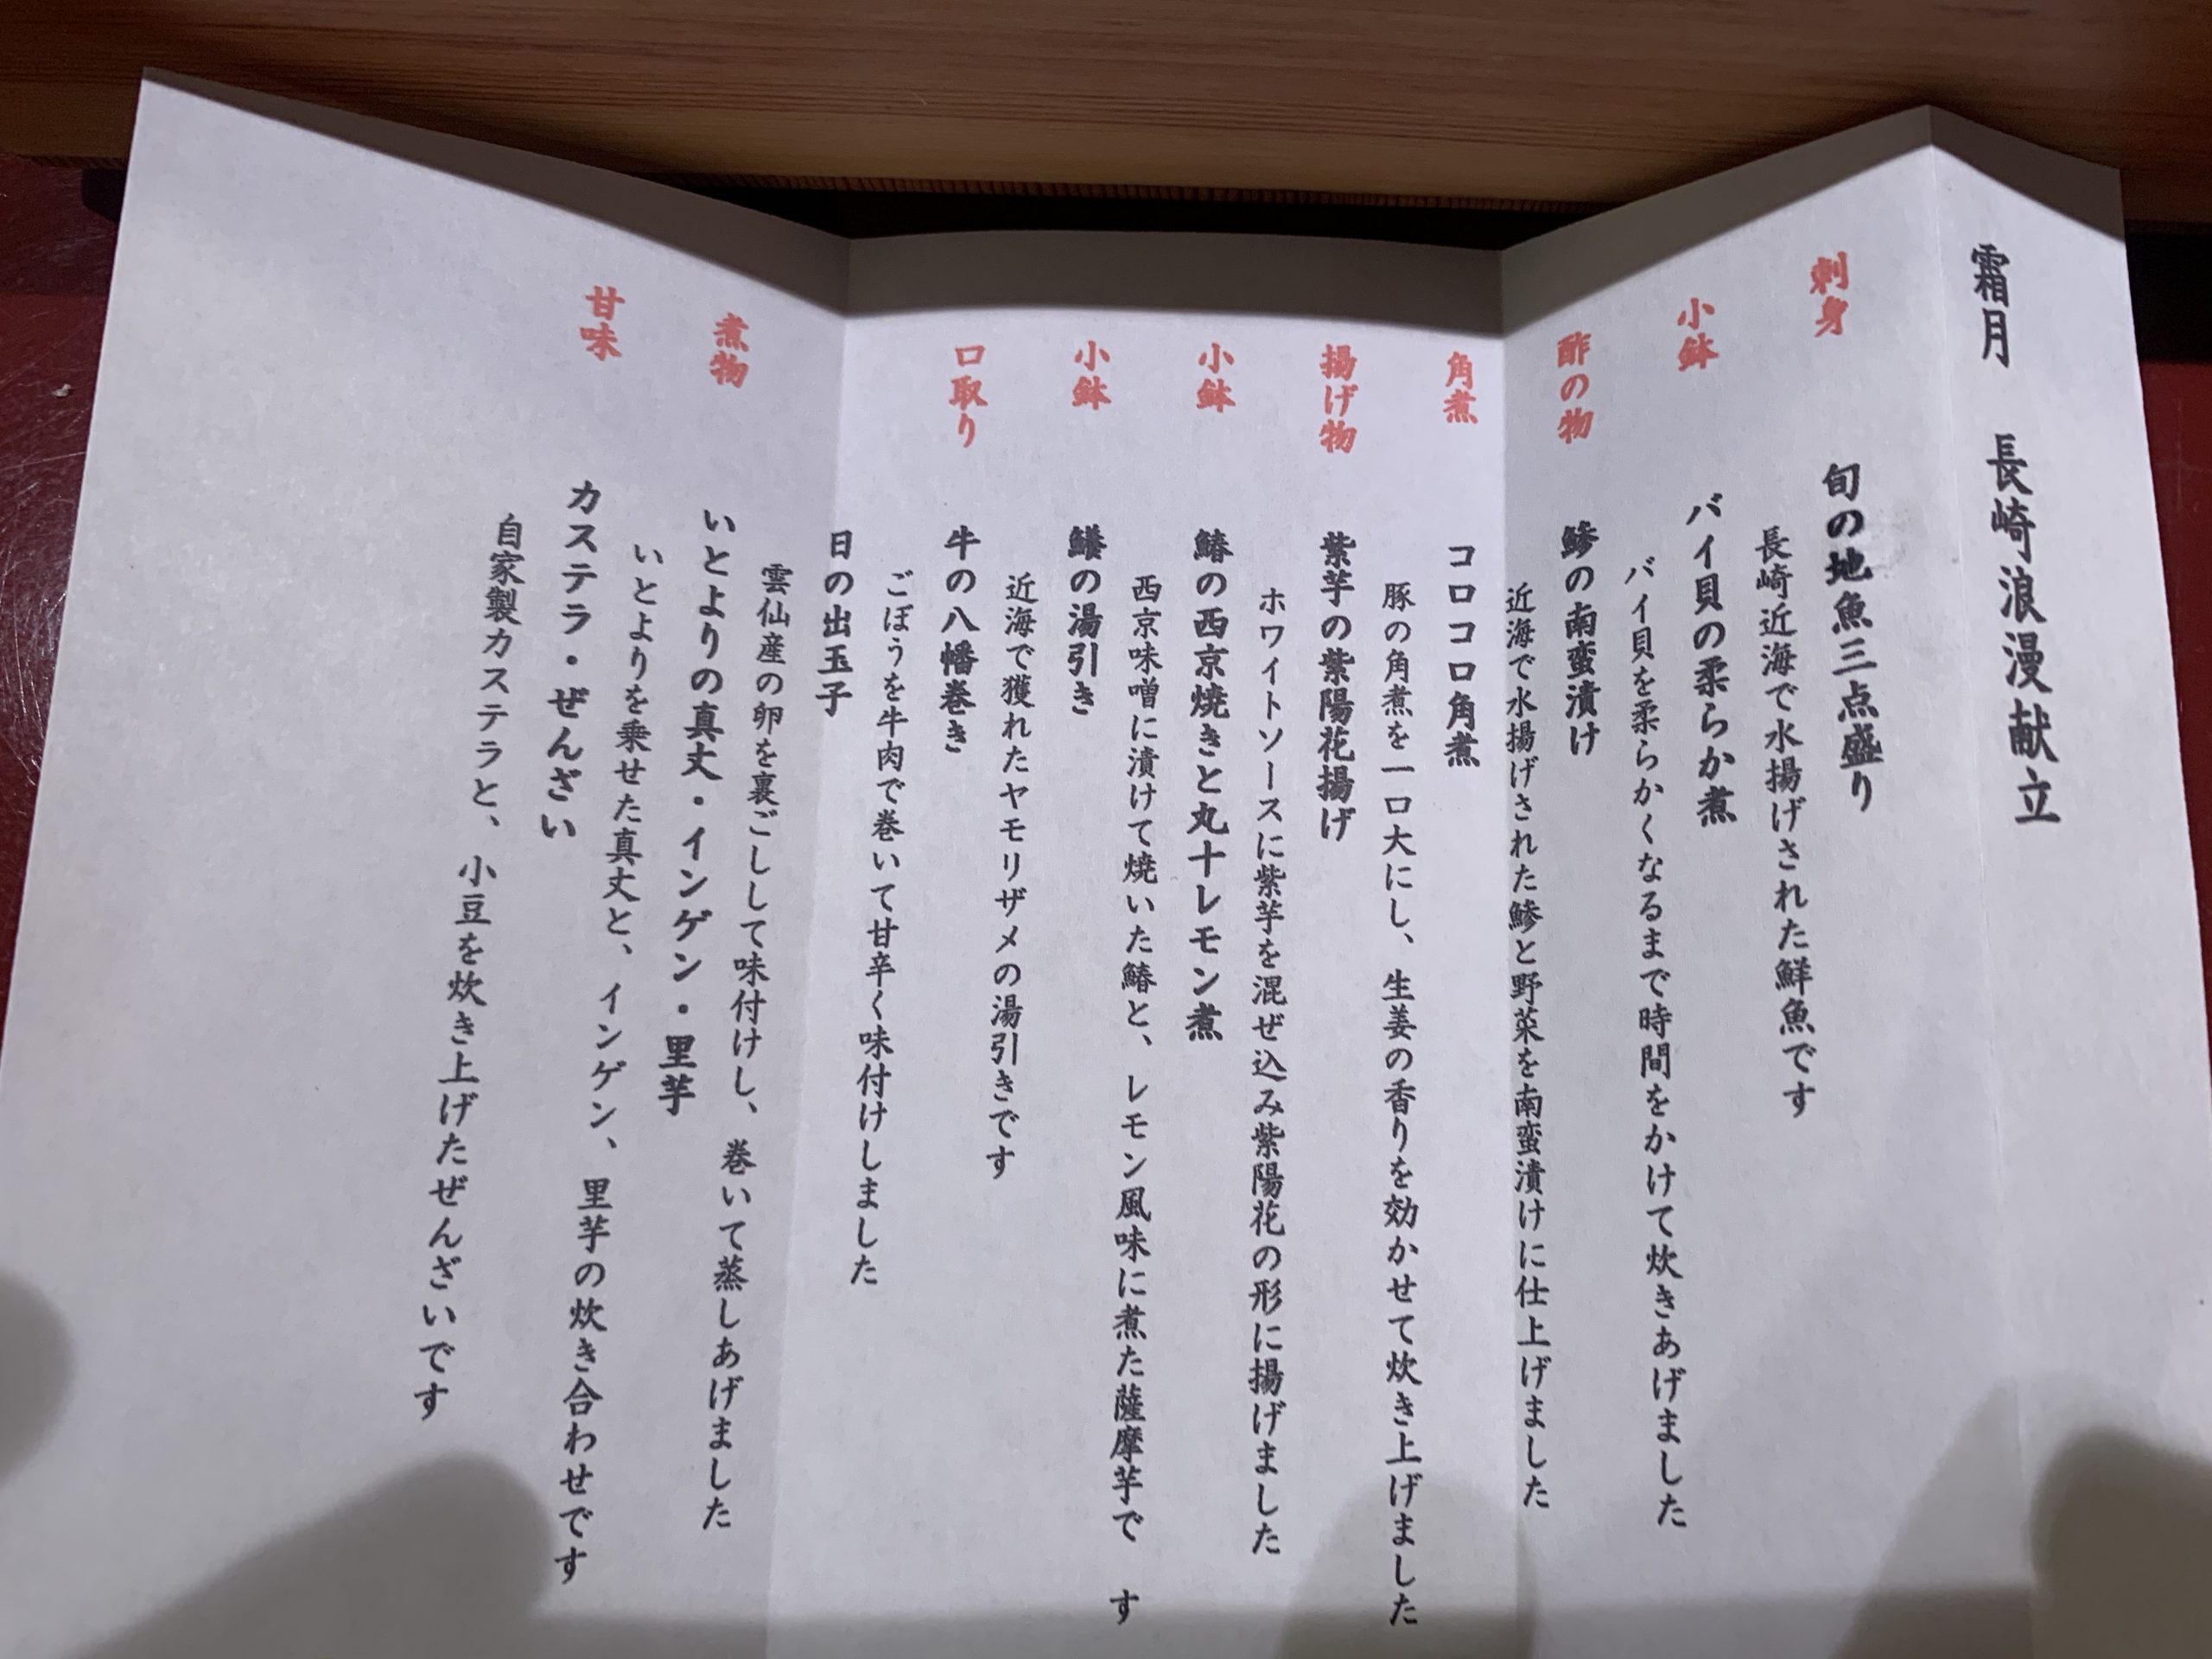 霜月　長崎浪漫献立
刺身　旬の地魚三点盛り
長崎近海で水揚げされた鮮魚です
小鉢　バイ貝の柔らか煮
バイ貝を柔らかくなるまで時間をかけて炊きあげました
酢の物　鯵の南蛮漬け
近海で水揚げされた鯵と野菜を南蛮漬けに仕上げました
角煮　コロコロ角煮
豚の角煮を一口大にし、生姜の香りを効かせて炊き上げました
揚げ物　紫芋の紫陽花揚げ
ホワイトソースに紫芋を混ぜ込み紫陽花の形に揚げました
小鉢　鰆の西京焼きと丸十レモン煮
西京味噌に漬けて焼いた鰆と、レモン風味に煮た薩摩芋で　す
小鉢　鱶の湯引き
近海で獲れたヤモリザメの湯引きです
口取り　牛の八幡巻き
ごぼうを牛肉で巻いて甘辛く味付けしました
日の出玉子
雲仙産の卵を裏ごしして味付けし、巻いて蒸しあげました
煮物　いとよりの真丈・インゲン・里芋
いとよりを乗せた真丈と、インゲン、里芋の炊き合わせです
甘味　カステラ・ぜんざい
自家製カステラと、小豆を炊き上げたぜんざいです